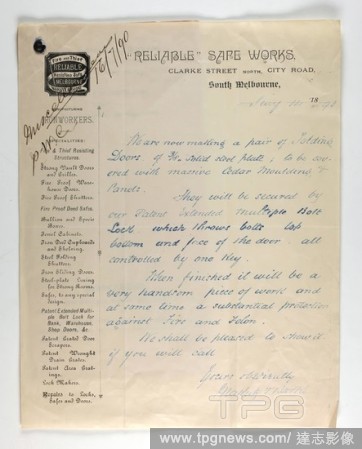 "RELIABLE" SAFE WORKS.
CLARKE STREET NORTH, CITY ROAD,
South Melbourne,
16/7/90
Fire and Thief
RELIABLE
MELBOURNE
IRONWORKERS.
& Thief Resisting
Structures.
Strong Vault Doors
and Grilles.
Fire Proof Ware-
house Doors.
Fire Proof Shutters.
Fire Proof Deed Safes.
Bullion and Specie
Boxes.
Jewel Cabinets.
Iron Book Cupboards
and Shelving.
Steel Rolling
Shutters.
Iron Sliding Doors.
Steel-plate Lining
for Strong Rooms.
Safes, to any special
design.
Patent Extended Multi-
ple Bolt Lock for
Bank, Warehouse,
Shop Doors, &c.
Patent
Scrapers.
Patent Wrought
Drain Grates.
Patent Area Grat-
ings.
Lock Makers.
Repairs to Locks,
Safes and Doors.
We are now making a pair of Folding
Doors of solid steel plate, to be cov-
ered with massive Cedar Moulding &
Panels.
They will be secured by
our Patent Extended Multiple Bolt
Lock which throws bolts top
bottom and face of the door all
controlled by one Key.
When finished it will be a
very handsome piece of work and
at same time a substantial protection
against Fire and Felon.
We shall be pleased to show it
if you will call
Yours obediently
TPG
www.tpgnews.com/ 達志影像